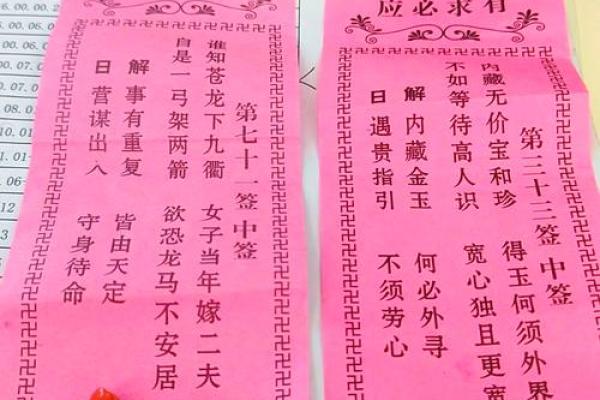 有求必应
第三十三签中签
内藏无价宝和珍 得玉何须外界
不如等待高人识 宽心独且更宽
解 内藏金玉 何必外寻
日 遇贵指引 不须劳心
第七十一签中签
谁知苍龙下九衢 女子当年嫁二夫
自是一弓架两箭 欲恐龙马不安居
解 事有重复 皆由天定
日 营谋出入 守身待命